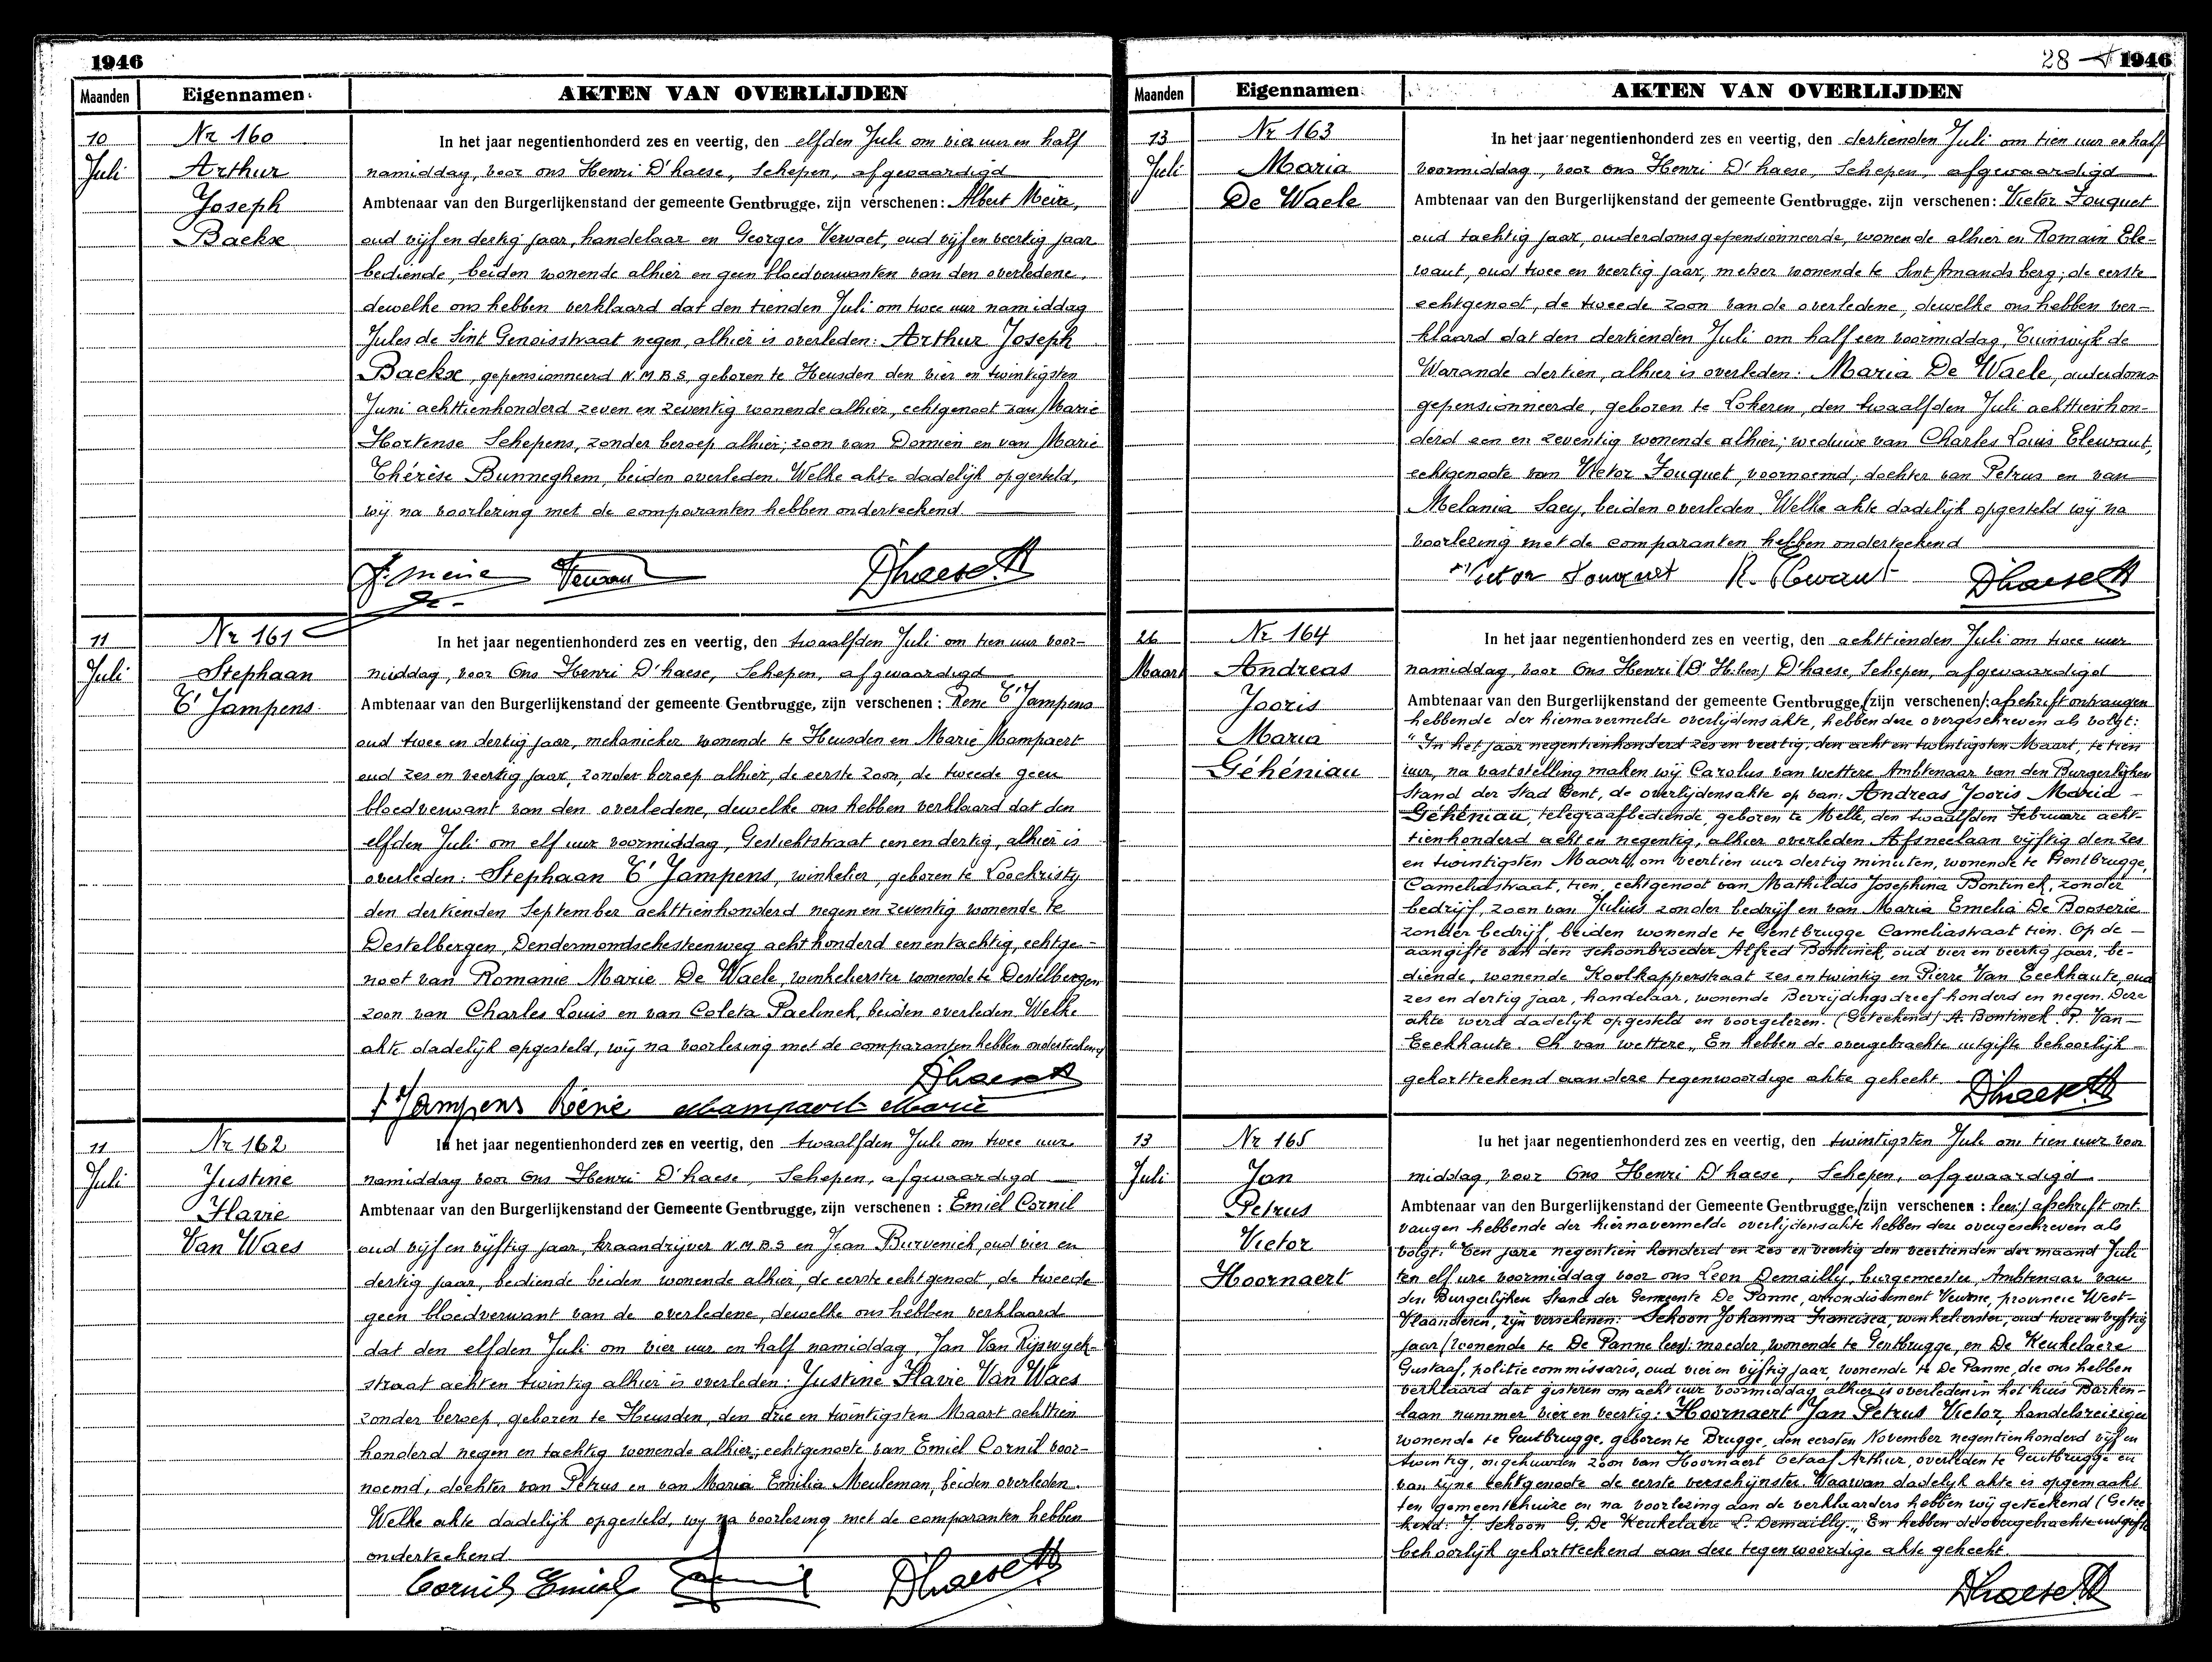 1946
Maanden Eigennamen AKTEN VAN OVERLIJDEN
10
Juli
Nr 160
Arthur
Joseph
Backx
In het jaar negentienhonderd zes en veertig, den elfden Juli om vier uur en half
namiddag, voor ons Henri D'haese, Schepen, afgevaardigd
Ambtenaar van den Burgerlijkenstand der gemeente Gentbrugge, zijn verschenen: Albert Meire,
oud vijf en dertig jaar, handelaar en Georges Vervaet, oud vijf en veertig jaar
bediende, beiden wonende alhier en geen bloedverwanten van den overledene,
dewelke ons hebben verklaard dat den tienden Juli om twee uur namiddag
Jules de Sint Genoisstraat negen, alhier is overleden: Arthur Joseph
Backx, gepensionneerd N.M.B.S, geboren te Heusden den vier en twintigsten
Juni achttienhonderd zeven en zeventig wonende alhier, echtgenoot van Marie
Hortense Schepens, zonder beroep alhier; zoon van Domien en van Marie
Thérèse Bunneghem, beiden overleden. Welke akte dadelijk opgesteld,
wij na voorlezing met de comparanten hebben onderteekend
D'haese H
11
Juli
Nr 161
Stephaan
T'Jampens
In het jaar negentienhonderd zes en veertig, den twaalfden Juli om tien uur voor-
middag, voor Ons Henri D'haese, Schepen, afgevaardigd
Ambtenaar van den Burgerlijkenstand der gemeente Gentbrugge, zijn verschenen: René T'Jampens
oud twee en dertig jaar, mekanieker wonende te Heusden en Marie Mampaert
oud zes en veertig jaar, zonder beroep alhier, de eerste zoon, de tweede geen
bloedverwant van den overledene, dewelke ons hebben verklaard dat den
elfden Juli om elf uur voormiddag, Gestichtstraat een en dertig, alhier is
overleden: Stephaan T'Jampens, winkelier, geboren te Loochristy
den dertienden September achttienhonderd negen en zeventig wonende te
Destelbergen, Dendermondschesteenweg acht honderd een en tachtig, echtge-
noot van Romanie Marie De Waele, winkelierster wonende te Destelbergen
zoon van Charles Louis en van Coleta Paelinck, beiden overleden. Welke
akte dadelijk opgesteld, wij na voorlezing met de comparanten hebben onderteekend
D'haese H
T'Jampens René Mampaert Marie
11
Juli
Nr 162
Justine
Flavie
Van Waes
In het jaar negentienhonderd zes en veertig, den twaalfden Juli om twee uur
namiddag voor Ons Henri D'haese, Schepen, afgevaardigd
Ambtenaar van den Burgerlijkenstand der Gemeente Gentbrugge, zijn verschenen: Emiel Cornil
oud vijf en vijftig jaar, kraandrijver N.M.B.S en Jean Burvenich oud vier en
dertig jaar, bediende beiden wonende alhier, de eerste echtgenoot, de tweede
geen bloedverwant van de overledene, dewelke ons hebben verklaard
dat den elfden Juli om vier uur en half namiddag, Jan Van Rijswyck-
straat acht en twintig alhier is overleden: Justine Flavie Van Waes
zonder beroep, geboren te Heusden, den drie en twintigsten Maart achttien
honderd negen en tachtig wonende alhier; echtgenoote van Emiel Cornil voor-
noemd; dochter van Petrus en van Maria Emilia Meuleman, beiden overleden.
Welke akte dadelijk opgesteld, wij na voorlezing met de comparanten hebben
onderteekend
Cornil Emiel D'haese H
28 1946
Maanden Eigennamen AKTEN VAN OVERLIJDEN
13
Juli
Nr 163
Maria
De Waele
In het jaar negentienhonderd zes en veertig, den dertienden Juli om tien uur en half
voormiddag, voor ons Henri D'haese, Schepen, afgevaardigd
Ambtenaar van den Burgerlijkenstand der gemeente Gentbrugge, zijn verschenen: Victor Fouquet
oud tachtig jaar, ouderdomsgepensionneerde, wonende alhier en Romain Ele-
waut, oud twee en veertig jaar, metser wonende te Sint Amandsberg; de eerste
echtgenoot, de tweede zoon van de overledene, dewelke ons hebben ver-
klaard dat den dertienden Juli om half een voormiddag, Tuinwijk de
Warande dertien, alhier is overleden: Maria De Waele, ouderdoms-
gepensionneerde, geboren te Lokeren, den twaalfden Juli achttienhon-
derd een en zeventig wonende alhier; weduwe van Charles Louis Elewaut,
echtgenoote van Victor Fouquet, voornoemd; dochter van Petrus en van
Melania Saey, beiden overleden. Welke akte dadelijk opgesteld wij na
voorlezing met de comparanten hebben onderteekend
Victor Fouquet R. Elewaut D'haese H
26
Maart
Nr 164
Andreas
Jooris
Maria
Géhéniau
In het jaar negentienhonderd zes en veertig, den achttienden Juli om twee uur
namiddag, voor Ons Henri (D'H. lees) D'haese, Schepen, afgevaardigd
Ambtenaar van den Burgerlijkenstand der gemeente Gentbrugge, (zijn verschenen): afschrift ontvangen
hebbende der hiernavermelde overlijdensakte, hebben deze overgeschreven als volgt:
"In het jaar negentienhonderd zes en veertig, den acht en twintigsten Maart, te tien
uur, na vaststelling maken wij Carolus van wettere Ambtenaar van den Burgerlijken
Stand der Stad Gent, de overlijdensakte op van: Andreas Jooris Maria
Géhéniau, telegraafbediende, geboren te Melle, den twaalfden Februari acht-
tienhonderd acht en negentig, alhier overleden Afsneelaan vijftig den zes
en twintigsten Maart, om veertien uur dertig minuten, wonende te Gentbrugge,
Cameliastraat, tien, echtgenoot van Mathildis Josephina Bontinck, zonder
bedrijf, zoon van Julius zonder bedrijf en van Maria Emelia De Booserie
zonder bedrijf, beiden wonende te Gentbrugge Cameliastraat tien. Op de
aangifte van den schoonbroeder Alfred Bontinck, oud vier en veertig jaar, be-
diende, wonende Koolkapperstraat zes en twintig en Pierre Van Eeckhaute, oud
zes en dertig jaar, handelaar, wonende Bevrijdingsdreef honderd en negen. Deze
akte werd dadelijk opgesteld en voorgelezen. (Geteekend) A. Bontinck. P. Van
Eeckhaute. Ch van wettere„ En hebben de overgebrachte uitgifte behoorlijk
gekortteekend aan deze tegenwoordige akte gehecht D'haese H
13
Juli
Nr 165
Jan
Petrus
Victor
Hoornaert
In het jaar negentienhonderd zes en veertig, den twintigsten Juli om tien uur voor
middag, voor Ons Henri D'haese, Schepen, afgevaardigd
Ambtenaar van den Burgerlijkenstand der Gemeente Gentbrugge, (zijn verschenen : lees:) afschrift ont
vangen hebbende der hiernavermelde overlijdensakte hebben deze overgeschreven als
volgt: "Ten jare negentien honderd en zes en veertig den veertienden der maand Juli
ten elf ure voormiddag voor ons Leon Demailly, burgemeester, Ambtenaar van
den Burgerlijken Stand der Gemeente De Panne, arrondissement Veurne, provincie West-
Vlaanderen, zijn verschenen: Schoon Johanna Francisca, winkelierster, oud twee en vijftig
jaar (wonende te De Panne lees): moeder, wonende te Gentbrugge, en De Keukelaere
Gustaaf, politiecommissaris, oud vier en vijftig jaar, wonende te De Panne, die ons hebben
verklaard dat gisteren om acht uur voormiddag alhier is overleden in het huis Barken-
laan nummer vier en veertig: Hoornaert Jan Petrus Victor, handelsreiziger
wonende te Gentbrugge, geboren te Brugge, den eersten November negentienhonderd vijf en
twintig, ongehuwden zoon van Hoornaert Octaaf Arthur, overleden te Gentbrugge en
van zijne echtgenoote de eerste verschijnster. Waarvan dadelijk akte is opgemaakt
ten gemeentehuize en na voorlezing aan de verklaarders hebben wij geteekend (Getee
kend: J. Schoon G. De Keukelaere L. Demailly„ En hebben de overgebrachte uitgifte
behoorlijk gekortteekend aan deze tegenwoordige akte gehecht
D'haese H